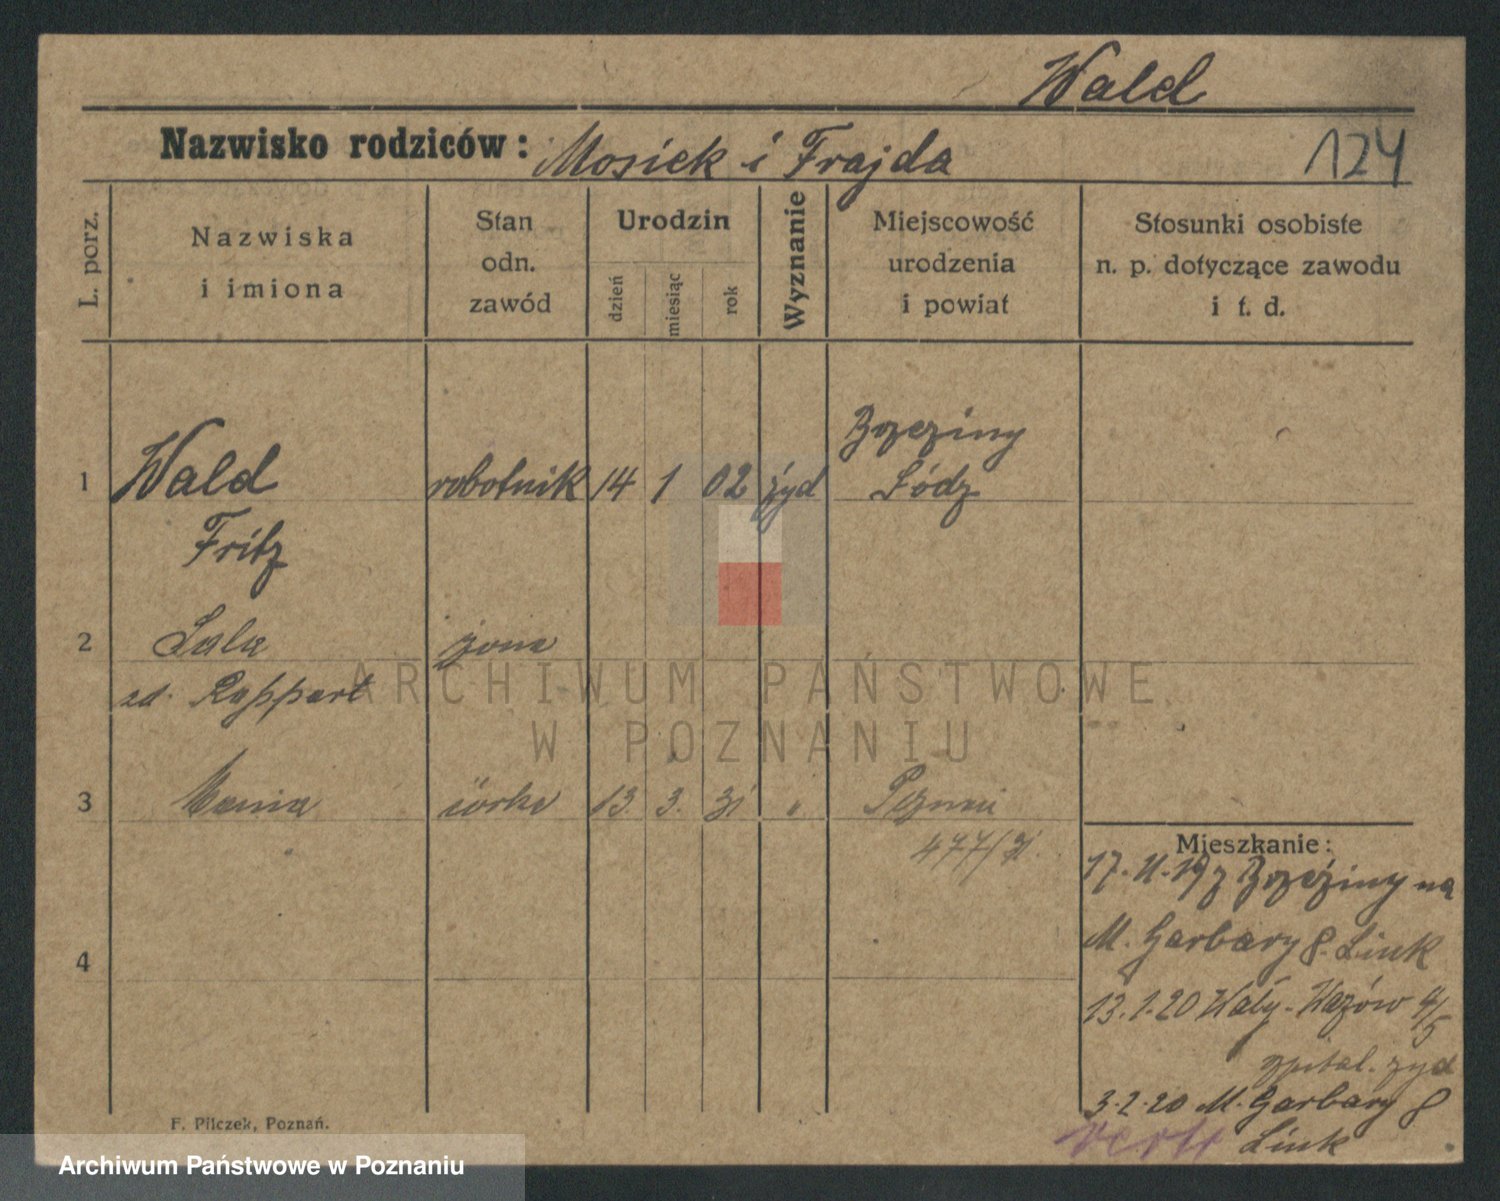 Wald
Nazwisko rodziców: Mosiek i Frajda
124
L. porz.
Nazwiska
i imiona
Stan
odn.
zawód
Urodzin
dzień
miesiąc
rok
Wyznanie
Miejscowość
urodzenia
i powiat
Stosunki osobiste
n. p. dotyczące zawodu
i t. d.
Brzeziny
1 Wald robotnik 14 1 02 żyd Łódz
Fritz
2 Lala żona
zd. Rappart
3 Mania córka 13. 3. 31 " Poznań
477/31.
Mieszkanie:
17. 11. 19 z Brzeziny na
M. Garbary 8. Link
4
13. 1. 20 Wały-Wazów 4/5
szpital. żyd
3. 2. 20 M. Garbary 8
Link
verte
F. Pilczek, Poznań.
ARCHIWUM PAŃSTWOWE
W POZNANIU
Archiwum Państwowe w Poznaniu